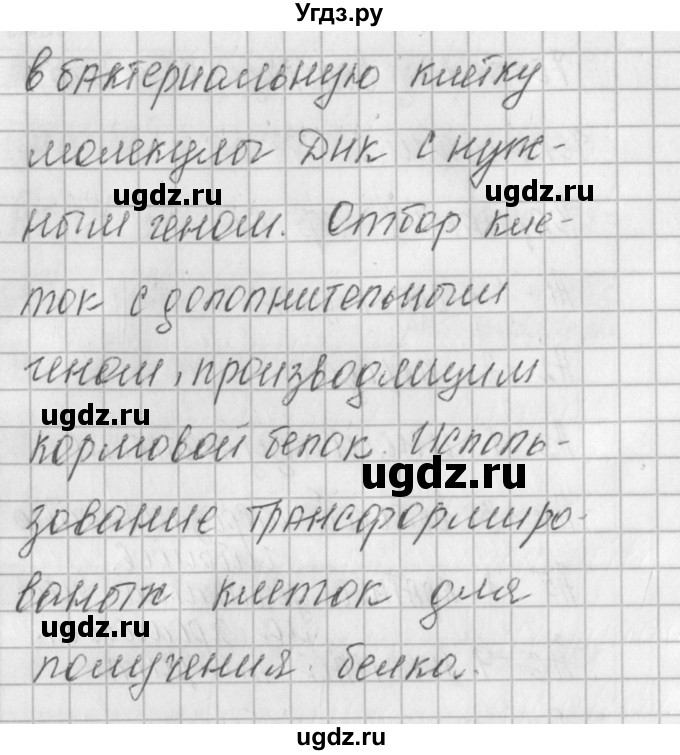 Угдз.ру
в бактериальную клетку
молекулы ДНК с нуж-
ным геном. Отбор кле-
ток с дополнительным
геном, производящим
кормовой белок. Исполь-
зование трансформиро-
ваных клеток для
получения белка.
ugdz.ru
ugdz.ru
ugdz.ru
ugdz.ru
ugdz.ru
ugdz.ru
ugdz.ru